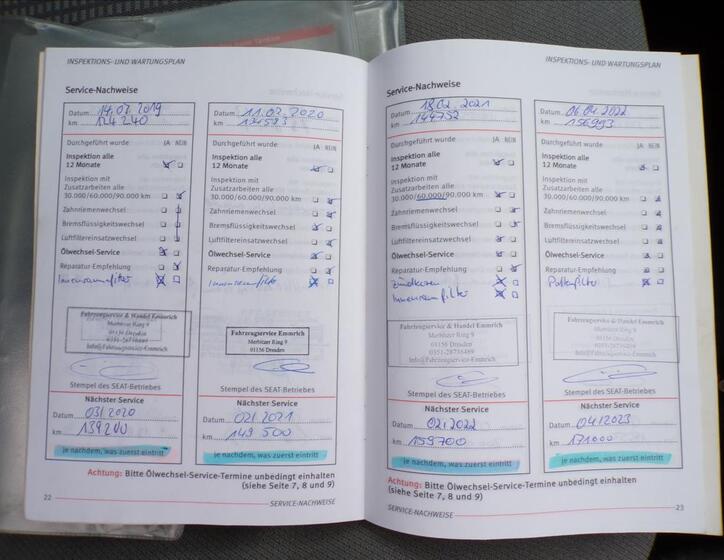 INSPEKTIONS- UND WARTUNGSPLAN
Service-Nachweise
Datum 14.02.2019
km 124240
Durchgeführt wurde JA NEIN
Inspektion alle
12 Monate
Inspektion mit
Zusatzarbeiten alle
30.000/60.000/90.000 km
Zahnriemenwechsel
Bremsflüssigkeitswechsel
Luftfiltereinsatzwechsel
Ölwechsel-Service
Reparatur-Empfehlung
Innenraumfilter
Fahrzeugservice & Handel Emmrich
Merbitzer Ring 9
01156 Dresden
0351-28736489
Info@Fahrzeugservice-Emmrich
Stempel des SEAT-Betriebes
Nächster Service
Datum 03/2020
km 139200
je nachdem, was zuerst eintritt
Datum 11.02.2020
km
Durchgeführt wurde JA NEIN
Inspektion alle
12 Monate
Inspektion mit
Zusatzarbeiten alle
30.000/60.000/90.000 km
Zahnriemenwechsel
Bremsflüssigkeitswechsel
Luftfiltereinsatzwechsel
Ölwechsel-Service
Reparatur-Empfehlung
Innenraumfilter
Fahrzeugservice & Handel Emmrich
Merbitzer Ring 9
01156 Dresden
Stempel des SEAT-Betriebes
Nächster Service
Datum 02/2021
km 149 500
je nachdem, was zuerst eintritt
Achtung: Bitte Ölwechsel-Service-Termine unbedingt einhalten
(siehe Seite 7, 8 und 9)
22
SERVICE-NACHWEISE
INSPEKTIONS- UND WARTUNGSPLAN
Service-Nachweise
Datum 18.02.2021
km 144752
Durchgeführt wurde JA NEIN
Inspektion alle
12 Monate
Inspektion mit
Zusatzarbeiten alle
30.000/60.000/90.000 km
Zahnriemenwechsel
Bremsflüssigkeitswechsel
Luftfiltereinsatzwechsel
Ölwechsel-Service
Reparatur-Empfehlung
Zündkerzen
Innenraumfilter
Fahrzeugservice & Handel Emmrich
Merbitzer Ring 9
01156 Dresden
0351-28736489
Info@Fahrzeugservice-Emmrich
Stempel des SEAT-Betriebes
Nächster Service
Datum 02/2022
km 159700
je nachdem, was zuerst eintritt
Datum 06.04.2022
km 156993
Durchgeführt wurde JA NEIN
Inspektion alle
12 Monate
Inspektion mit
Zusatzarbeiten alle
30.000/60.000/90.000 km
Zahnriemenwechsel
Bremsflüssigkeitswechsel
Luftfiltereinsatzwechsel
Ölwechsel-Service
Reparatur-Empfehlung
Pollenfilter
Fahrzeugservice & Handel Emmrich
Merbitzer Ring 9
01156 Dresden
0351-28736489
Info@Fahrzeugservice-Emmrich
Stempel des SEAT-Betriebes
Nächster Service
Datum 04/2023
km 171000
je nachdem, was zuerst eintritt
Achtung: Bitte Ölwechsel-Service-Termine unbedingt einhalten
(siehe Seite 7, 8 und 9)
SERVICE-NACHWEISE
23